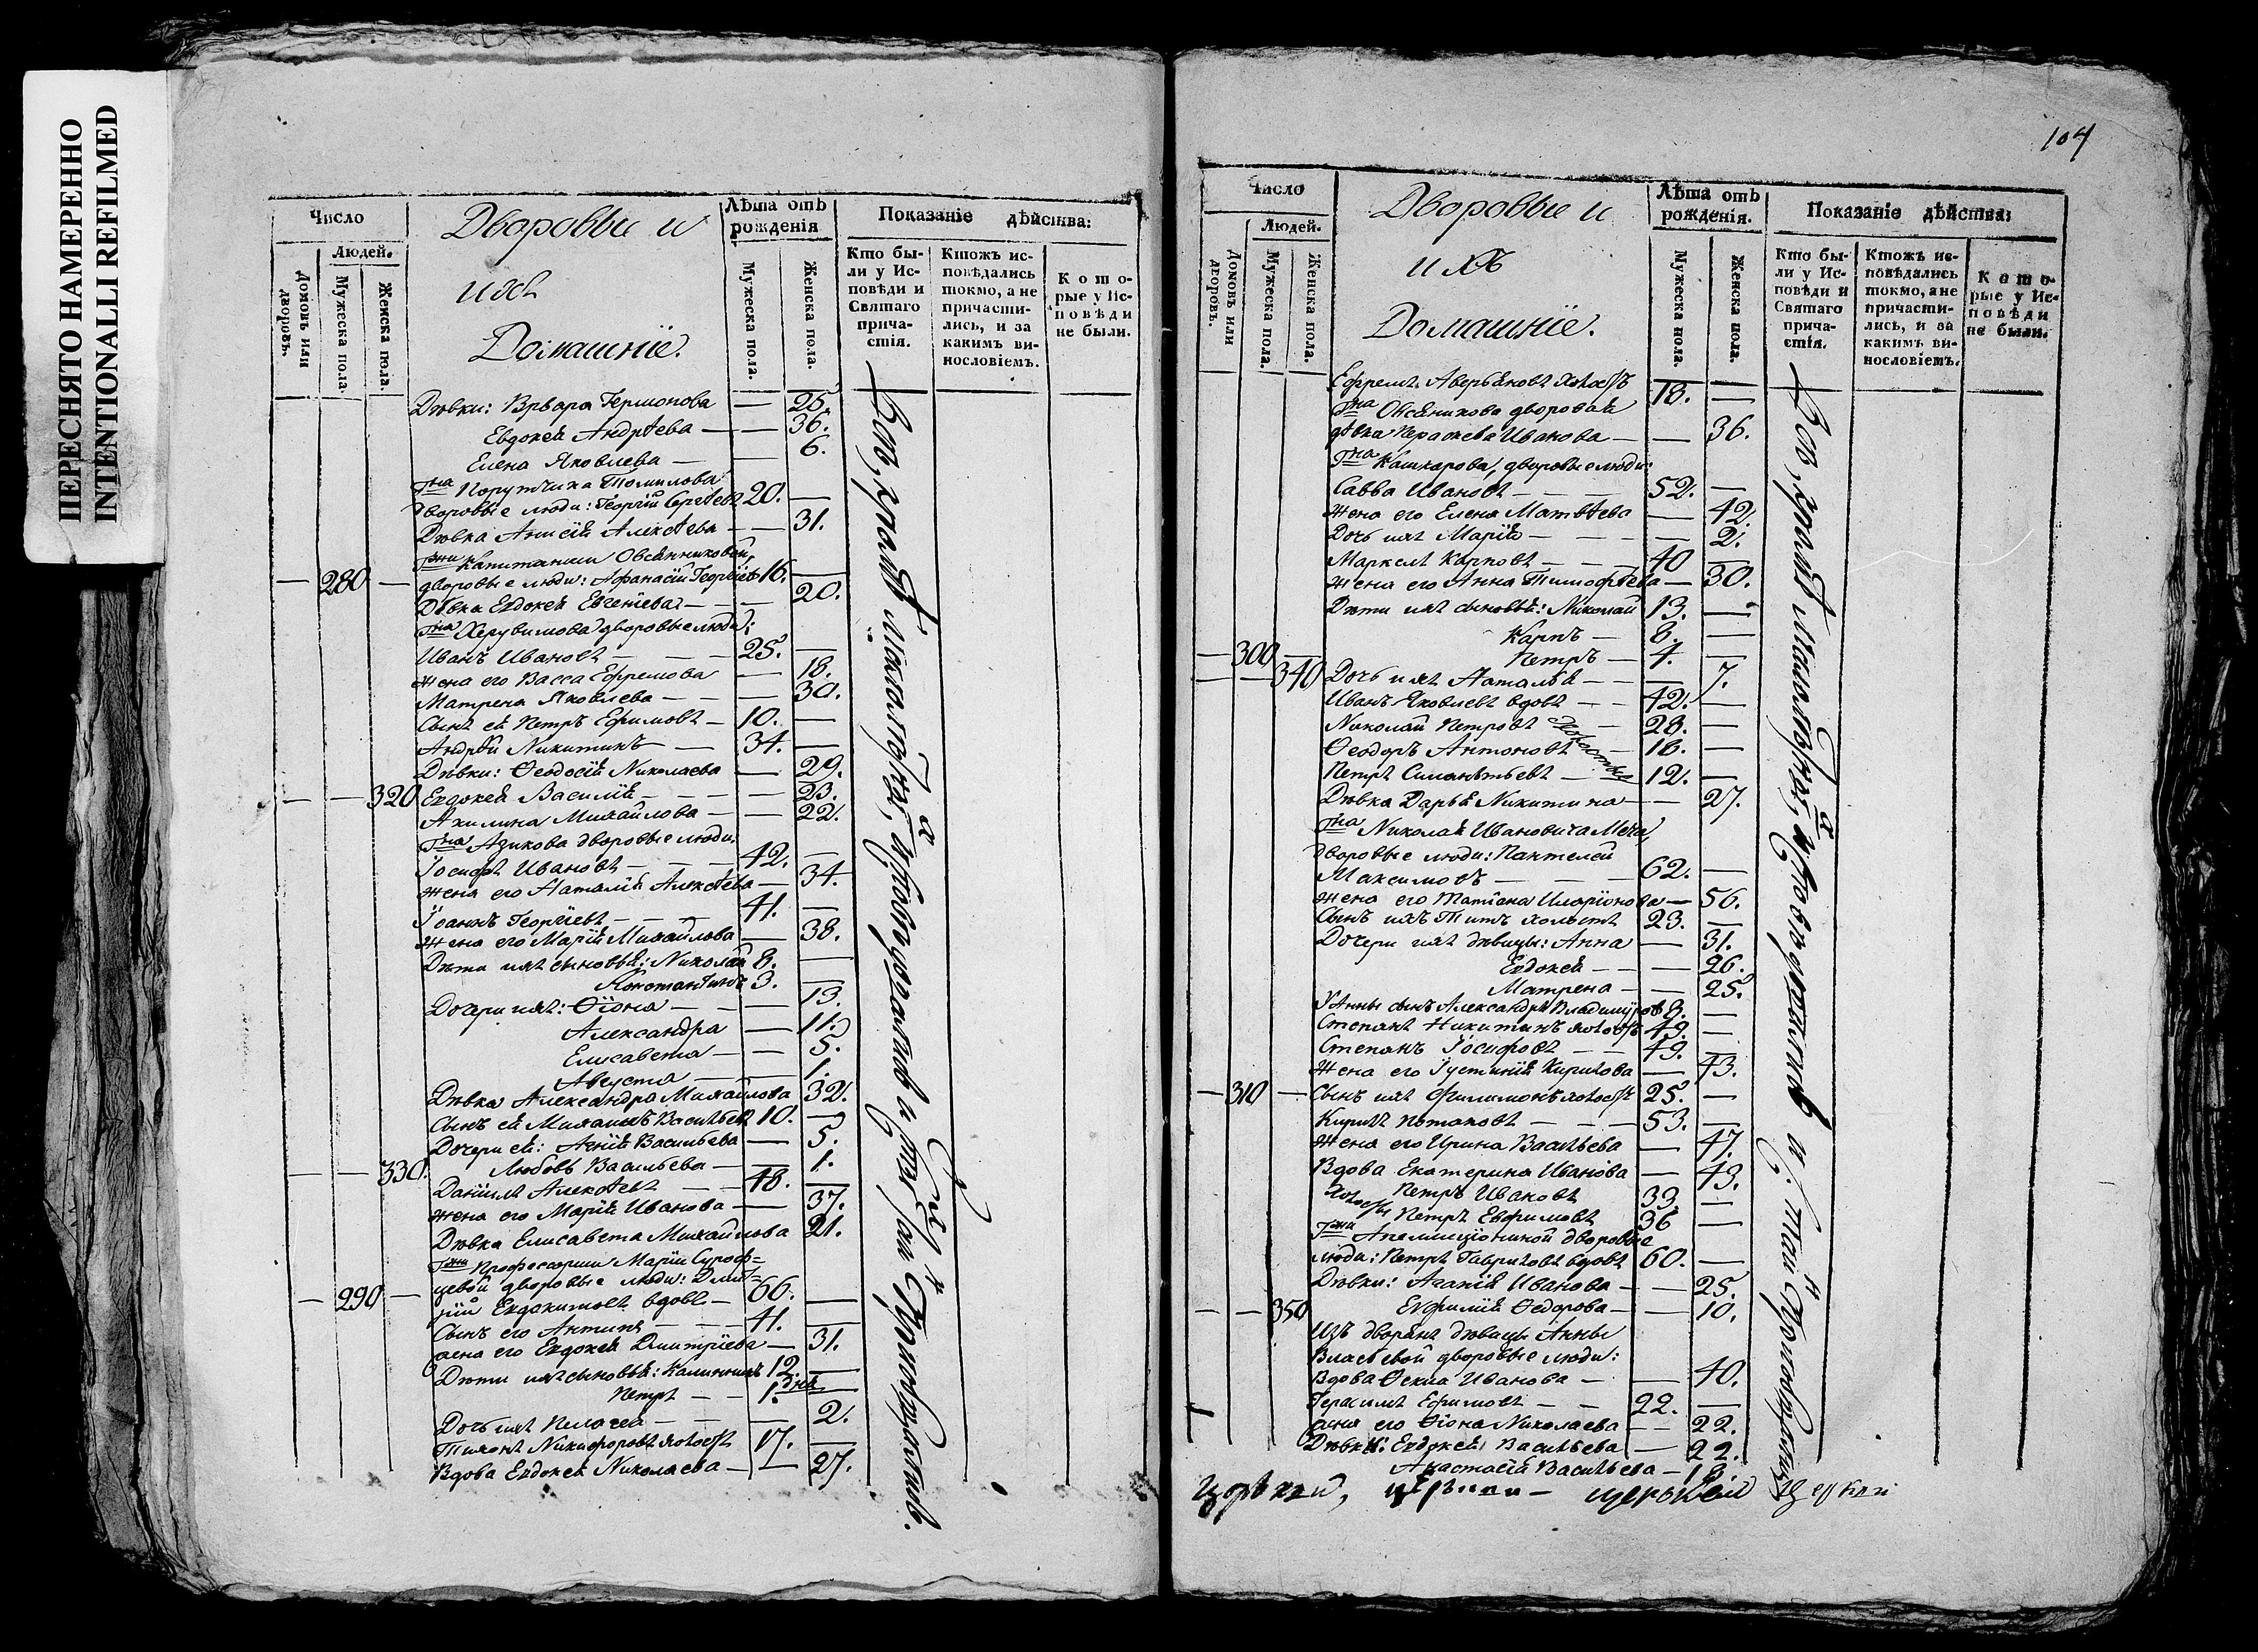 ПЕРЕСНЯТО НАМЕРЕННО
INTENTIONALLI REFILMED
Число
Людей.
Домовъ или дворовъ.
Мужеска пола.
Женска пола.
Дворовые и
ихъ
Домашнїе.
Лѣта отъ рожденія
Мужеска пола.
Женска пола.
Показаніе дѣйства:
Кто были у Исповѣди и Святаго причастія.
Ктожъ исповѣдались токмо, а не причастились, и за какимъ винословіемъ.
Которые у Исповѣди не были.
Дѣвки: Врвара Гермонова — 25.
Евдокея Андрѣева — — 36.
Елена Яковлева — — 6.
Гна Порутчика Томилова
дворовые люди: Георгій Сергѣевъ 20. —
Дѣвка Анисія Алексѣева — — 31.
Гжи Капитанши Овсянниковой,
— 280 — дворовые люди: Афанасій Георгіевъ 16. —
Дѣвка Евдокея Евгенїева — — 20.
Гна Херувимова дворовые люди:
Иванъ Ивановъ — — — 25. —
жена его Васса Ефремова — 18.
Матрена Яковлева — — — 30.
Сынъ ея Петръ Ефимовъ — 10. —
Андрей Никитинъ — — 34. —
Дѣвки: Ѳеодосія Николаева — 29.
— — 320 Евдокея Василія — — — — 23.
Акилина Михайлова — — 22.
Гна Азикова дворовые люди:
Іосифъ Ивановъ — — — 42. —
жена его Наталія Алексѣева — 34.
Іоаннъ Георгіевъ — — — 41. —
жена его Марія Михайлова — 38.
Дѣти ихъ сыновья: Николай 8. —
Константинъ 3. —
Дочери ихъ: Ѳїона — — — 13.
Александра — 11.
Елисавета — — 5.
Августа — — 1.
Дѣвка Александра Михайлова 32.
Сынъ ея Михаилъ Васильевъ 10. —
Дочери ея: Агнія Васильева — 5.
— — 330. Любовь Васильева — — 1.
Даніилъ Алексѣевъ — — 48. —
жена его Марія Иванова — — 37.
Дѣвка Елисавета Михайлова 21.
Гжи Профессорши Маріи
цевой дворовые люди: Димит=
— 290 — рій Евдокимовъ вдовъ — 66. —
Сынъ его Антипъ — — — 41. —
жена его Евдокея Дмитріева — 31.
Дѣти ихъ сыновья: Калинникъ 12. —
Петръ — — 1. дня —
Дочь ихъ Пелагея — — — 2.
Тихонъ Никифоровъ холостъ 17. —
Вдова Евдокея Николаева — — 27.
104
Число
Людей.
Домовъ или дворовъ.
Мужеска пола.
Женска пола.
Дворовые и
ихъ
Домашнїе.
Лѣта отъ рожденія.
Мужеска пола.
Женска пола.
Показаніе дѣйства:
Кто были у Исповѣди и Святаго причастія.
Ктожъ исповѣдались токмо, а не причастились, и за какимъ винословіемъ.
Которые у Исповѣди не были.
Ефремъ Аверьяновъ холостъ 18. —
Гна Овсяникова дворовая
дѣвка Параскева Иванова — — 36.
Гна Кашкарова, дворовые люди:
Савва Ивановъ — — — 52. —
жена его Елена Матвѣева — 42.
Дочь ихъ Марія — — — — 2.
Маркелъ Карповъ — — — 40 —
жена его Анна Тимофѣева — 30.
Дѣти ихъ сыновья: Николай 13. —
Карпъ — 8. —
— 300 — Петръ — 4. —
— — 340 Дочь ихъ Наталья — — — 7.
Иванъ Яковлевъ вдовъ — — 42. —
Николай Петровъ — 28. —
Ѳеодоръ Антоновъ — 18. —
холостые
Петръ — 12. —
Дѣвка Дарья Никитина — — 27.
Гна Николая Ивановича
дворовые люди: Пантелей
Максимовъ — — — 62. —
жена его Татіана Иларіонова — 56.
Сынъ ихъ Титъ холостъ 23. —
Дочери ихъ дѣвицы: Анна — 31.
Евдокея — — — 26.
Матрена — — 25.
У Анны сынъ Александръ Владимуровъ 8. —
Степанъ Никитинъ холостъ 49. —
Степанъ Іосифовъ — — 49. —
жена его Іустинія Кирилова — 43.
— 310 — Сынъ ихъ Филимонъ холостъ 25. —
Кирилъ Потаповъ — — — 53. —
жена его Ирина Васильева — 47.
Вдова Екатерина Иванова — 43.
Петръ Ивановъ 33 —
холосты
Петръ Евфимовъ 36 —
дворовые
люди: Петръ Гавриловъ вдовъ 60. —
Дѣвки: Агапія Иванова — — 25.
— — 350 Евфимія Ѳедорова — — 10.
Изъ дворянъ дѣвицы Анны
дворовые люди:
Вдова Ѳекла Иванова — — 40.
Герасимъ Ефимовъ — — 22. —
жена его Ѳіона Николаева — — 22.
Дѣвки: Евдокея Васильева — 22.
Анастасія Васильева — 18.